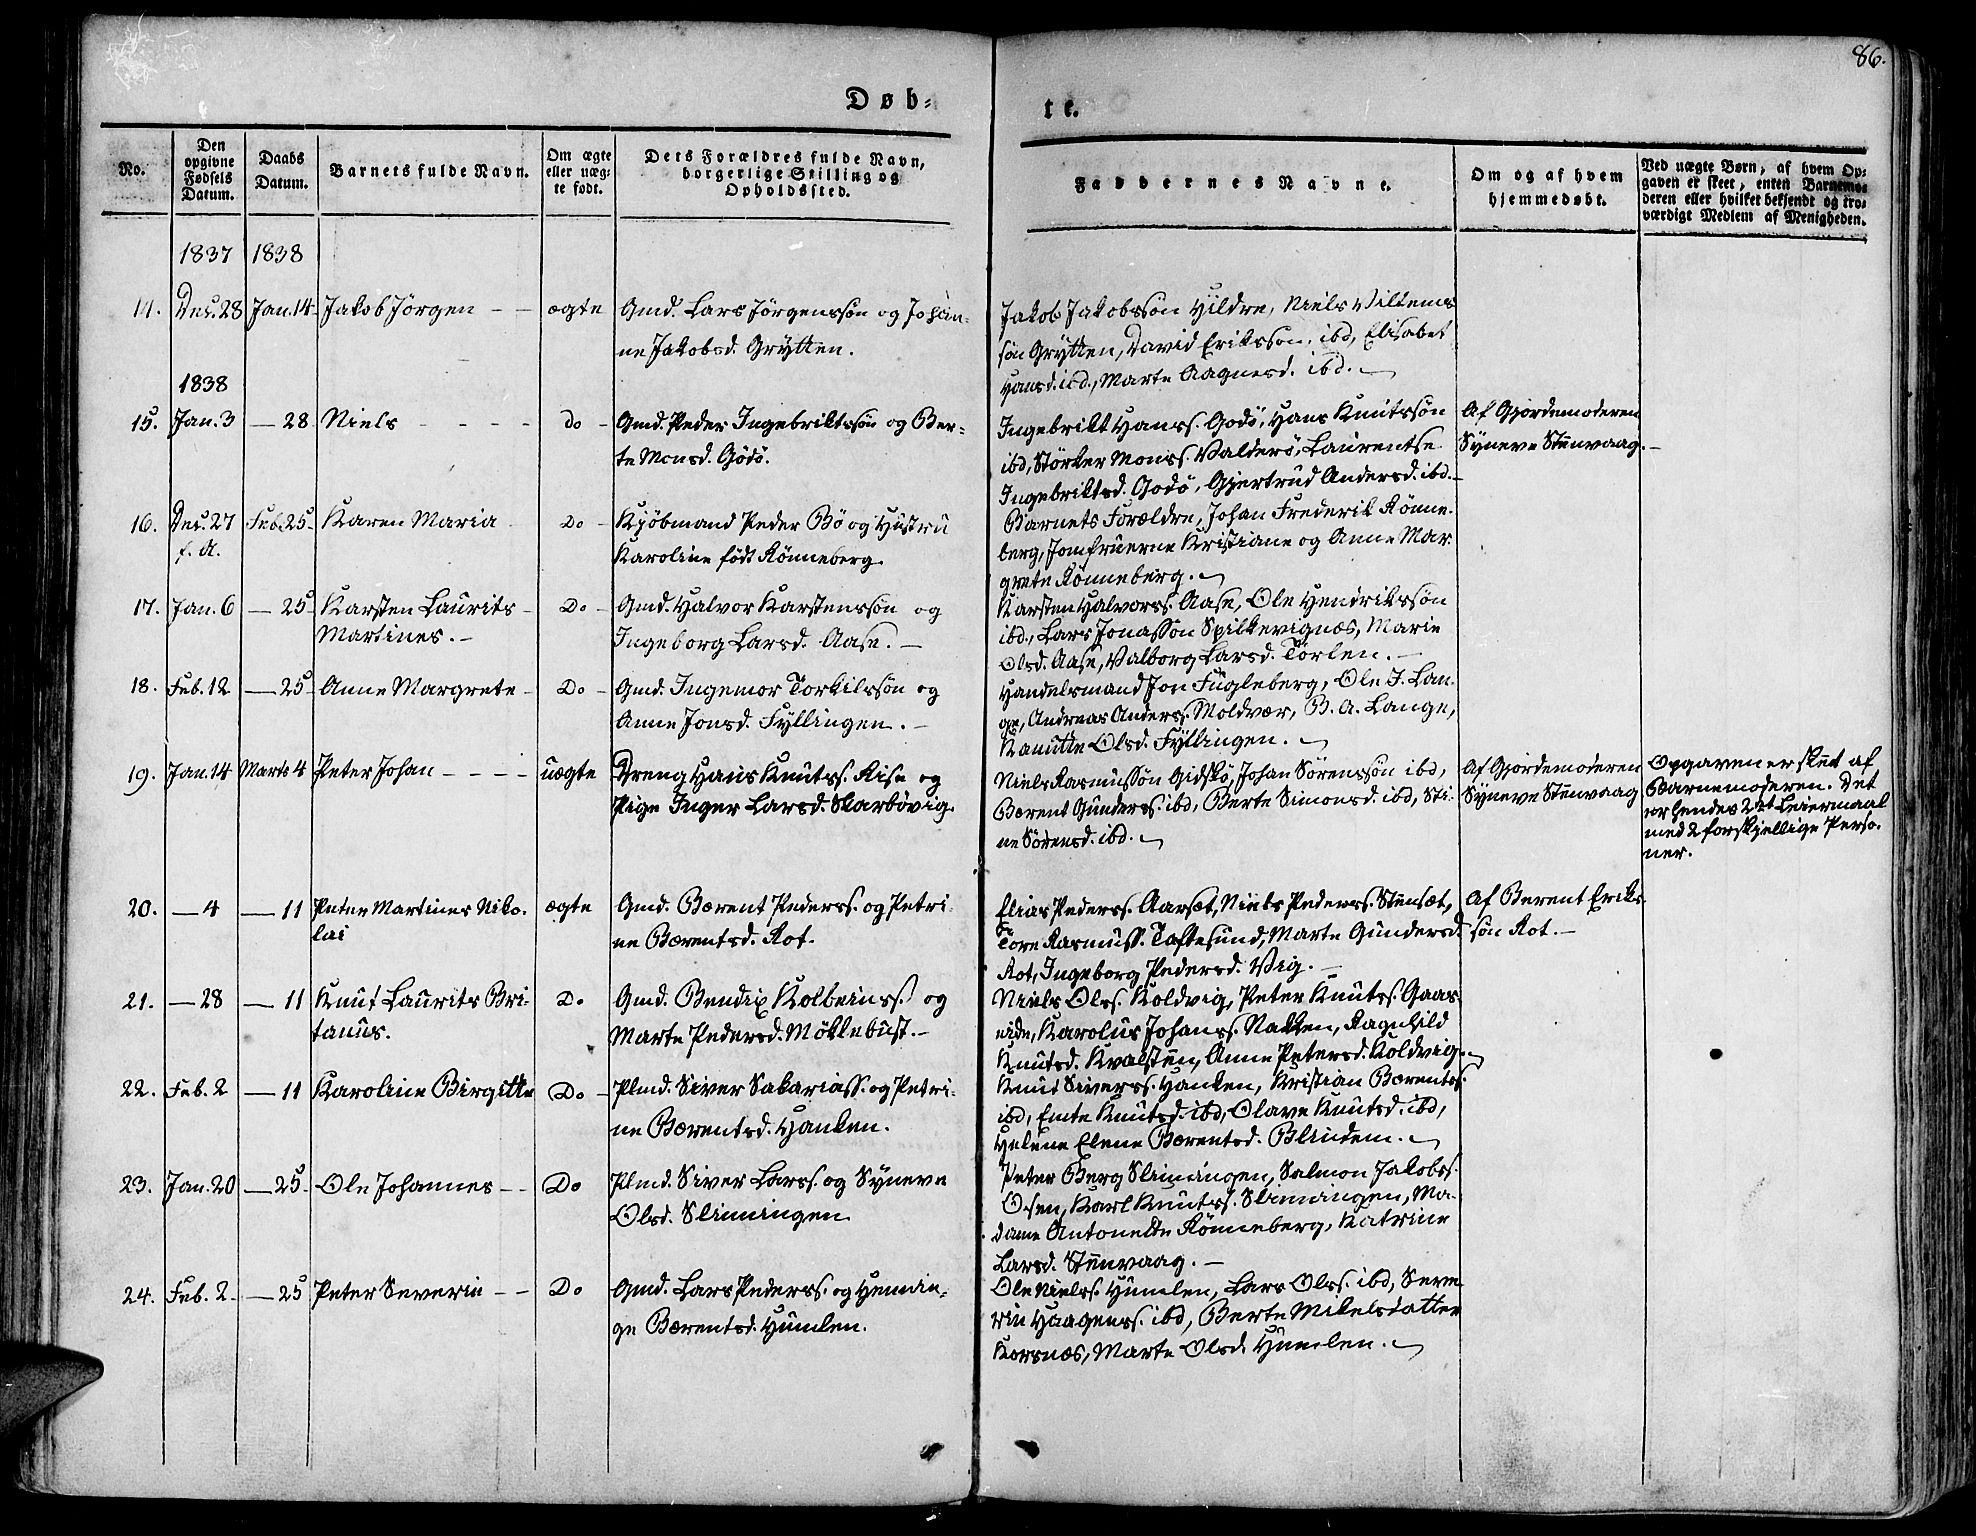 86.
Døb-
te.
No.
Den
opgivne
Fødsels
Datum.
Daabs
Datum.
Barnets fulde Navn.
Om ægte
eller uæg-
te født.
Dets Forældres fulde Navn,
borgerlige Stilling og
Opholdssted.
Faddernes Navne.
Om og af hvem
hjemmedøbt.
Ved uægte Børn, af hvem Op-
gaven er skeet, enten Barnemo-
deren eller hvilket bekjendt og tro-
værdigt Medlem af Menigheden.
1837 1838
14. Dec. 28 Jan. 14 Jakob Jörgen - - ægte Gmd. Lars Jörgenssön og Johan-
ne Jakobsd. Grytten.
Jakob Jakobssön Hildre, Niels Villems
sön Grytten, David Erikssön, ibd, Elisabet
Hansd. ibd., Marte Aagnesd. ibd. —
1838
15. Jan. 3 — 28 Niels - - - - Do - Gmd. Peder Ingebriktssön og Ber-
te Monsd. Godö.
Ingebrikt Hanss. Godö, Hans Knutssön
ibd, Störker Monss. Valderö, Laurentse
Ingebriktsd. Godö, Gjertrud Andersd. ibd. —
Af Gjordemoderen
Syneve Stenvaag. —
16. Dec. 27 Feb. 25 - Karen Maria - Do - Kjöbmand Peder Bö og Hustru
f. A.
Karoline födt Rönneberg.
Barnets Forældre, Johan Frederik Rönne-
berg, Jomfruerne Kristiane og Anne Mar-
grete Rönneberg. —
17. Jan. 6 — 25 - Karsten Laurits - Do - Gmd. Halvor Karstenssön og
Martines. — Ingeborg Larsd. Aase. —
Karsten Halvorss. Aase, Ole Hendrikssön
ibd., Lars Jonassön Spilkevignæs, Marie
Olsd. Aase, Valborg Larsd. Törlen. —
18. Feb. 12 — 25 - Anne Margrete - Do - Gmd. Ingemor Torkilssön og
Anne Jonsd. Fyllingen. —
Handelsmand Jon Fugleberg, Ole J. Lan-
ge, Andreas Anderss. Moldvær, B. A. Lange,
Kanutte Olsd. Fyllingen. —
19. Jan. 14 Marts 4 Peter Johan - - - - uægte Dreng Hans Knutss. Rise og
Pige Inger Larsd. Skarbövig.
Niels Rasmussön Gidskö, Johan Sörenssön ibd,
Bærent Gunderss. ibd, Berte Simonsd. ibd, Sti-
ne Sörensd. ibd. —
Af Gjordemoderen
Syneve Stenvaag
Opgaven er skeet af
Barnemoderen. Det
er hendes 2det Leiermaal
med 2 forskjellige Perso-
ner.
20. — 4 — 11 Peter Martines Niko- ægte Gmd. Bærent Pederss. og Petri-
lai ne Bærentsd. Rot.
Elias Pederss. Aarset, Niels Pederss. Stensæt,
Tore Rasmuss. Taftesund, Marte Gundersd.
Rot, Ingeborg Pedersd. Vig. —
Af Berent Eriks-
sön Rot. —
21. — 28 — 11 Knut Laurits Bri- Do Gmd. Bendix Kolbeinss. og
tanus. Marte Pedersd. Möklebust. —
Niels Olss. Koldvig, Peter Knutss. Gaas-
eide, Karolus Johanss. Nakken, Ragnhild
Knutsd. Kvalsteen, Anne Petersd. Koldvig. —
22. Feb. 2 — 11 Karoline Birgitte Do - Plmd. Siver Sakariass. og Petri-
ne Bærentsd. Hanken.
Knut Siverss. Hanken, Kristian Bærentss.
ibd, Emte Knutsd. ibd, Olave Knutsd. ibd,
Helene Elene Bærentsd. Blindem. —
23. Jan. 20 — 25 - Ole Johannes - - Do Plmd. Siver Larss. og Syneve
Olsd. Slinningen
Peter Berg Slinningen, Salmon Jakobss.
Osen, Karl Knutss. Slinningen, Ma-
dame Antonette Rönneberg, Katrine
Larsd. Stenvaag. —
24. Feb. 2 - — 25 Peter Severin - - Do Gmd. Lars Pederss. og Hennin-
ge Bærentsd. Humlen.
Ole Nielss. Humlen, Lars Olss. ibd, Seve-
rin Haagenss. ibd, Berte Mikelsdatter
Korsnæs, Marte Olsd. Humlen. —